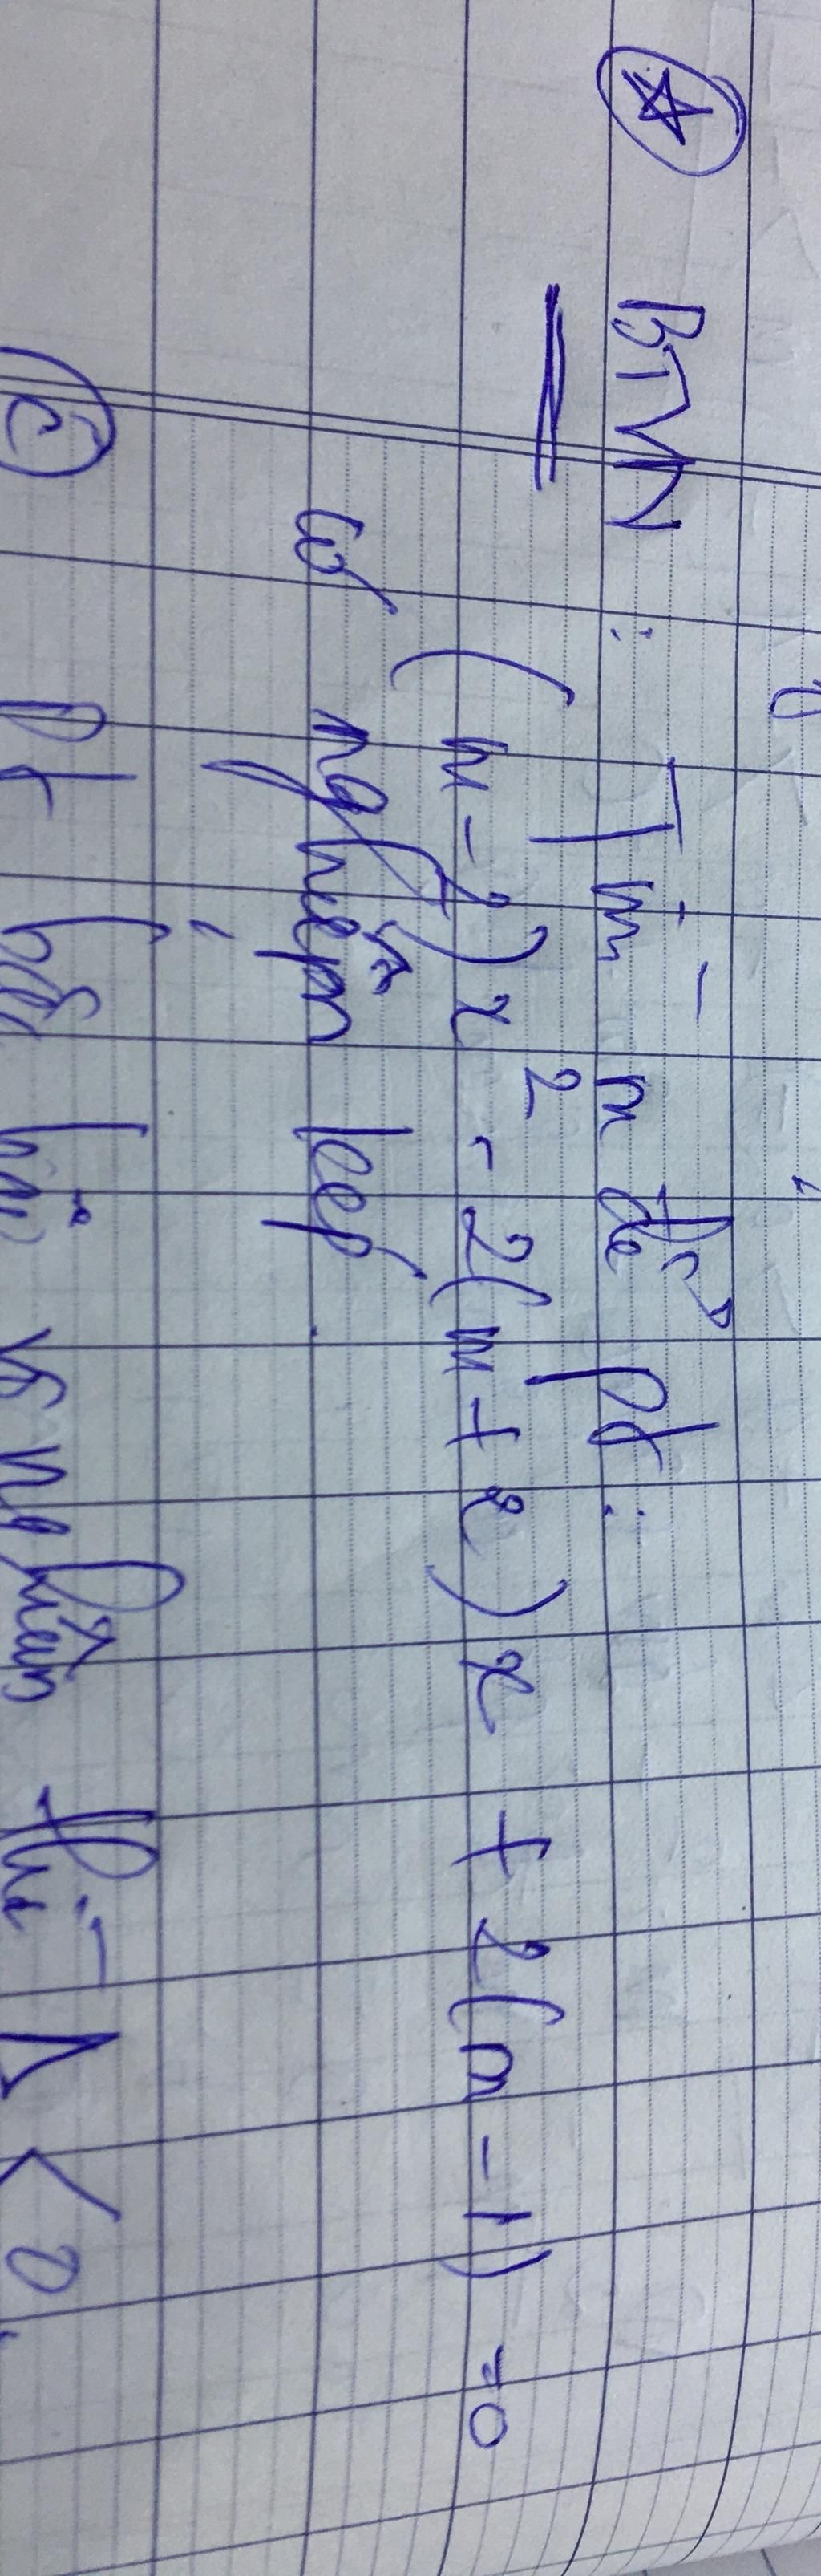 BTVN : Tìm n để pt :
(n - 2)x² - 2(m + 2)x + 2(m - 1) = 0
có nghiệm kép.
(c) Pt bậc hai vô nghiệm thì Δ < 0.